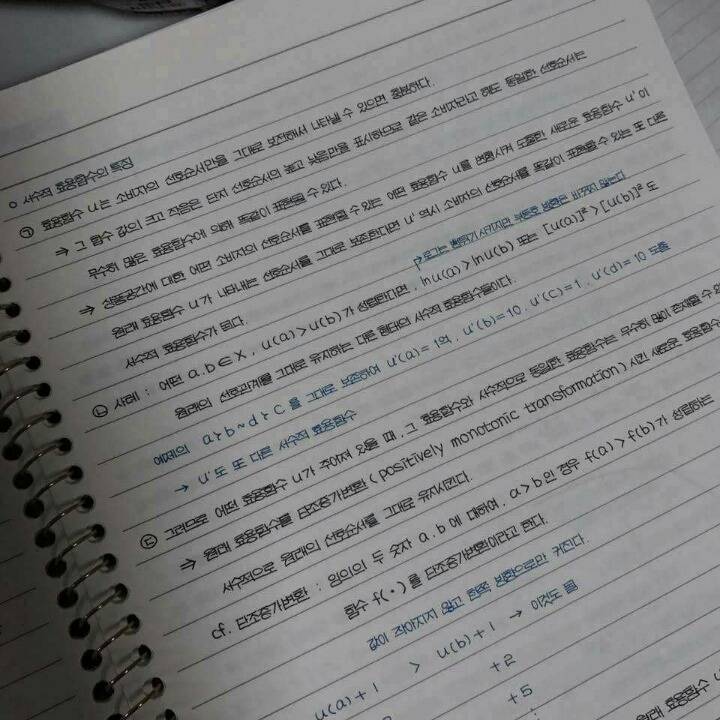 ○ 서수적 효용함수의 특징
㉠ 효용함수 u는 소비자의 선호순서만을 그대로 보전해서 나타낼 수 있으면 충분하다.
⇒ 그 함수 값의 크고 작음은 단지 선호순서의 높고 낮음만을 표시하므로 같은 소비자라고 해도 동일한 선호순서는
무수히 많은 효용함수에 의해 똑같이 표현될 수 있다.
⇒ 상품공간에 대한 어떤 소비자의 선호순서를 표현할 수 있는 어떤 효용함수 u를 변환시켜 도출한 새로운 효용함수 u'이
원래 효용함수 u가 나타내는 선호순서를 그대로 보존한다면 u' 역시 소비자의 선호순서를 똑같이 표현할 수 있는 또 다른
서수적 효용함수가 된다.
로그는 변환시키지만 부등호 방향은 바꾸지 않는다
㉡ 사례 : 어떤 a.b∈X, u(a)>u(b)가 성립한다면, lnu(a)>lnu(b) 또는 [u(a)]²>[u(b)]²도
원래의 선호관계를 그대로 유지하는 다른 형태의 서수적 효용함수들이다.
예제의 a≻b~d≻c 을 그대로 보존하여 u'(a)=19, u'(b)=10, u'(c)=1, u'(d)=10 도출
→ u'도 또 다른 서수적 효용함수
㉢ 그러므로 어떤 효용함수 u가 주어져 있을 때, 그 효용함수와 서수적으로 동일한 효용함수는 무수히 많이 존재할 수
⇒ 원래 효용함수를 단조증가변환(positively monotonic transformation)시킨 새로운 효용함수
서수적으로 원래의 선호순서를 그대로 유지시킨다.
cf. 단조증가변환 : 임의의 두 숫자 a.b에 대하여, a>b인 경우 f(a)>f(b)가 성립하는
함수 f(•)를 단조증가변환이라고 한다.
값이 작아지지 않고 한쪽 방향으로만 커진다.
u(a)+1 > u(b)+1 → 이것도 됨
+2
+5
원래 효용함수 u